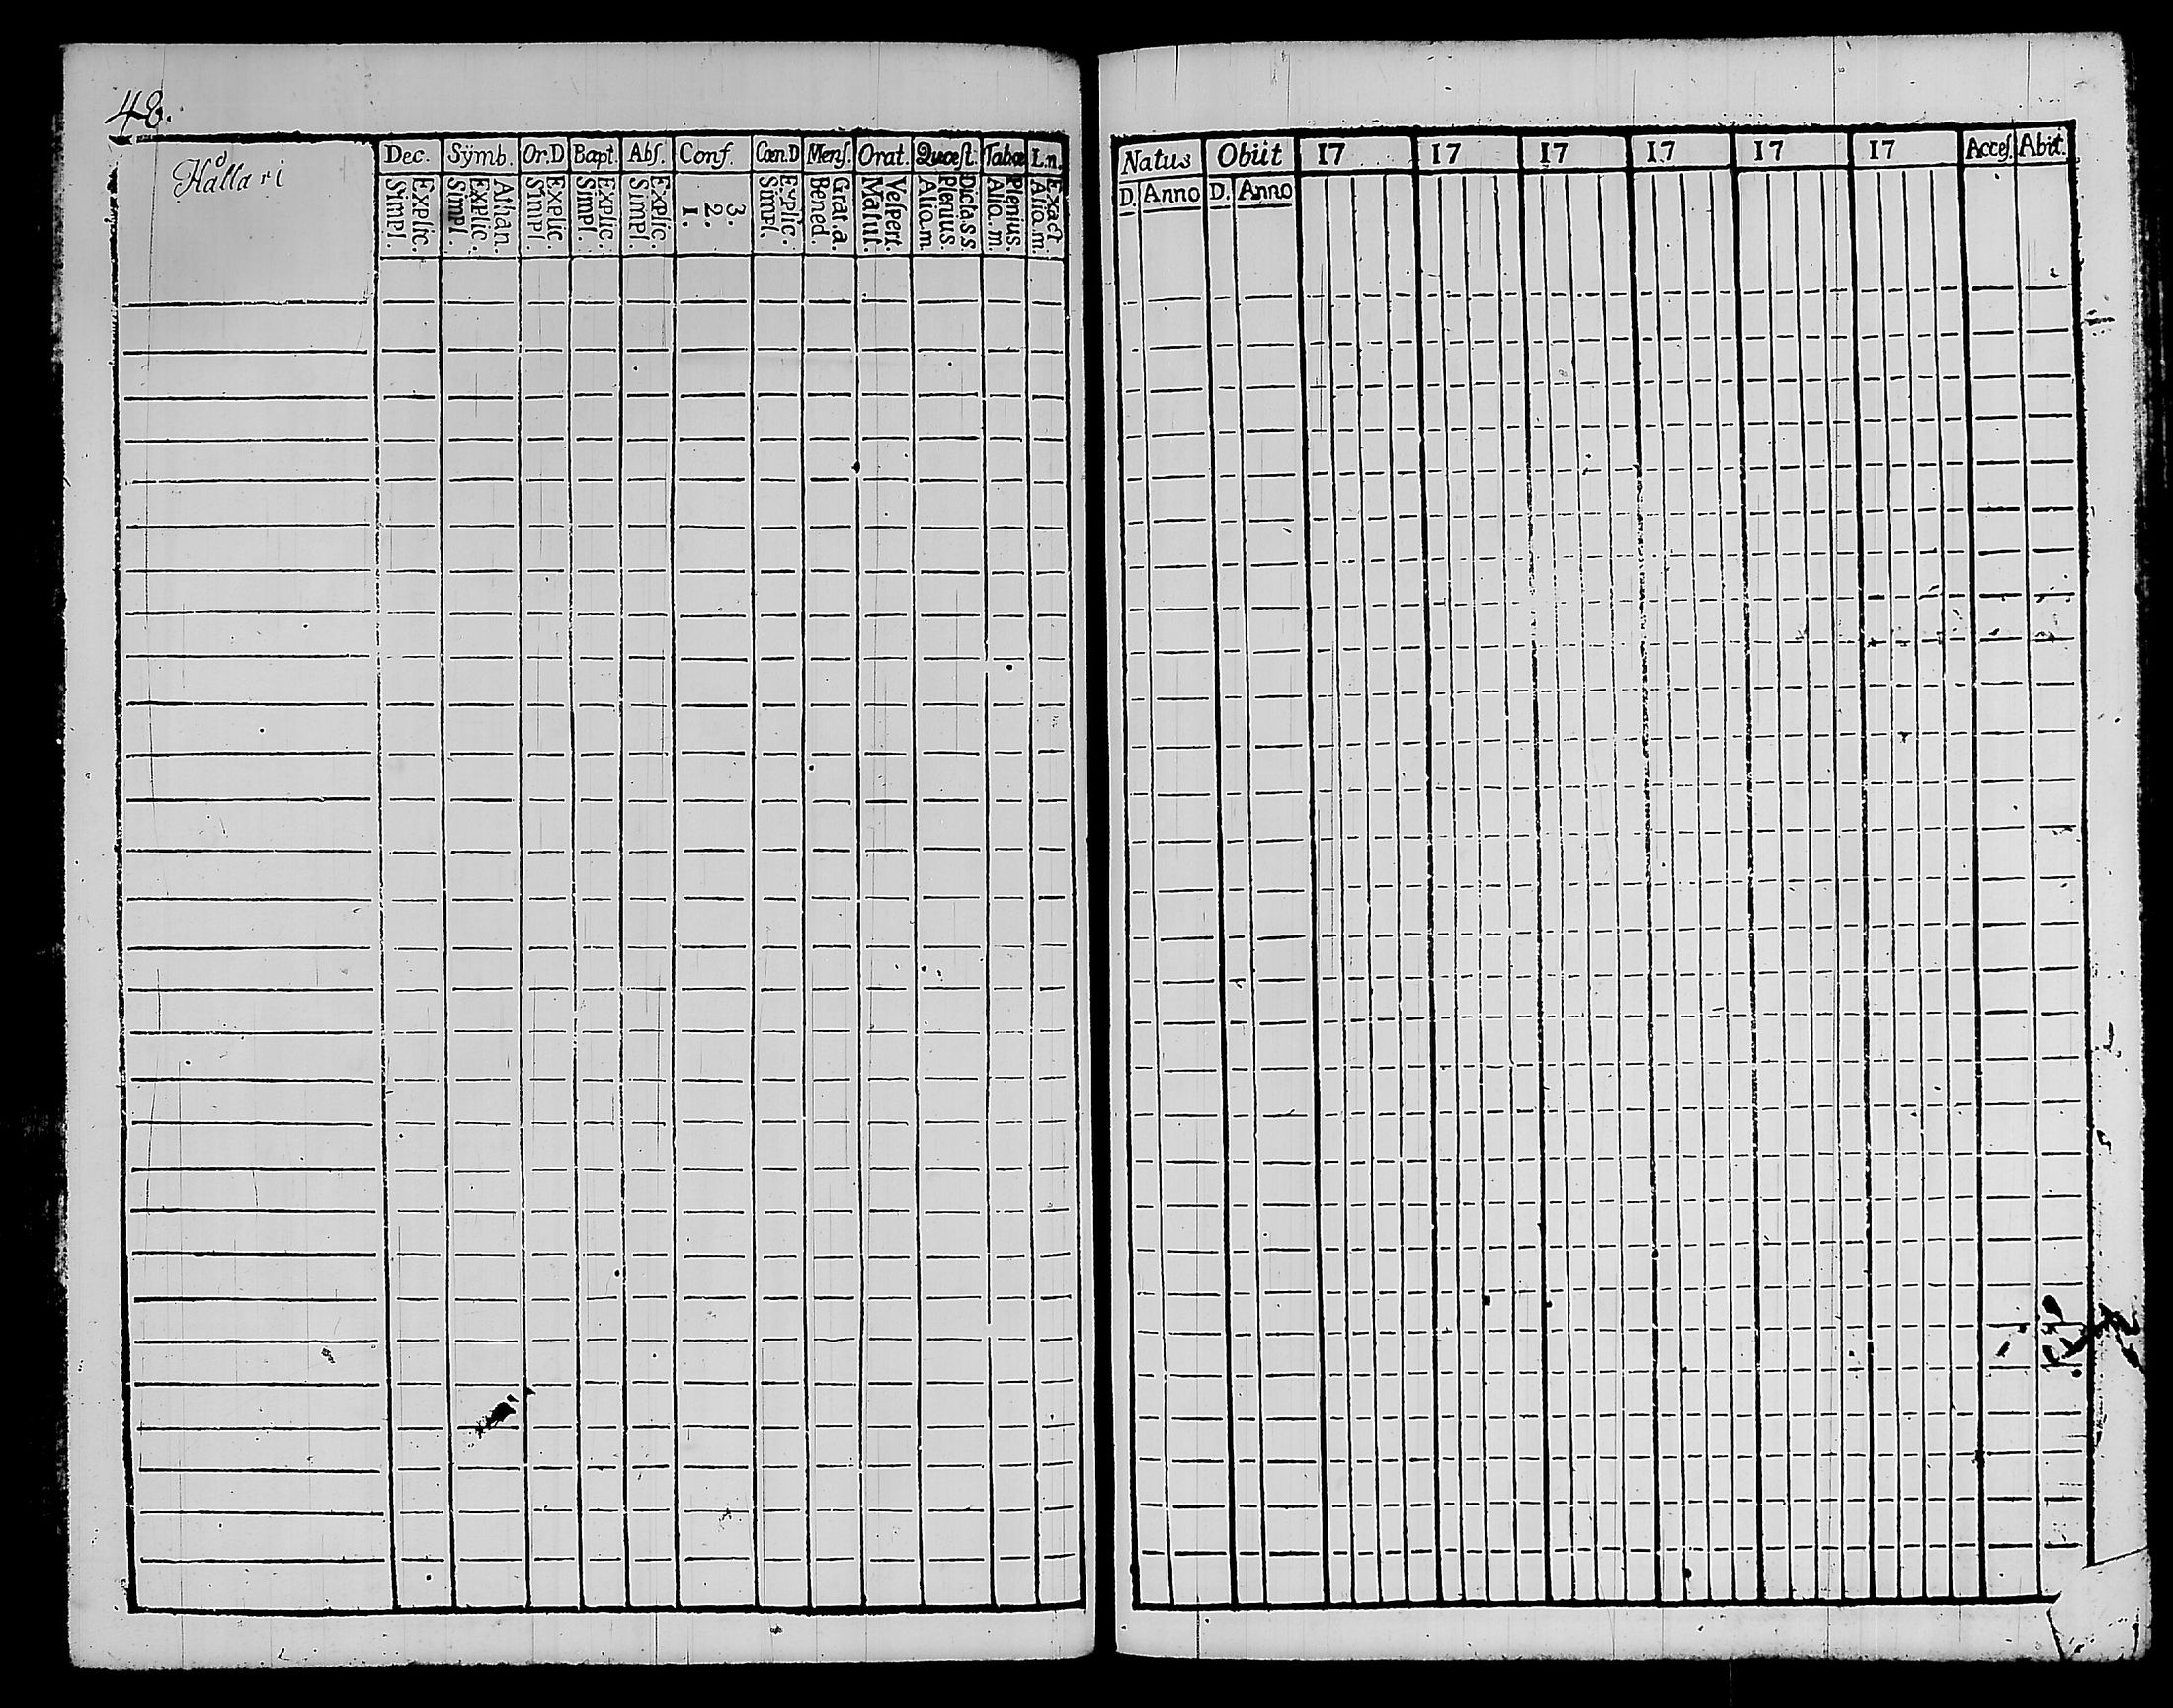 48.
Hållari
Dec. Sÿmb. Or.D Bapt. Abſ. Conf. Cœn.D Menſ. Orat. Quæſt. Tabæ I.n.
Explic. Simpl. Athan. Explic. Simpl. Explic. Simpl. Explic. Simpl. Explic. Simpl. 3. 2. 1. Explic. Simpl. Grat.a. Bened. Veſpert. Matut. Dicta.s.s Plenius. Alio.m. Plenius. Alio.m Exact. Alio.m.
Natus Obiit 17 17 17 17 17 17 Acceſ. Abiit.
D. Anno D. Anno